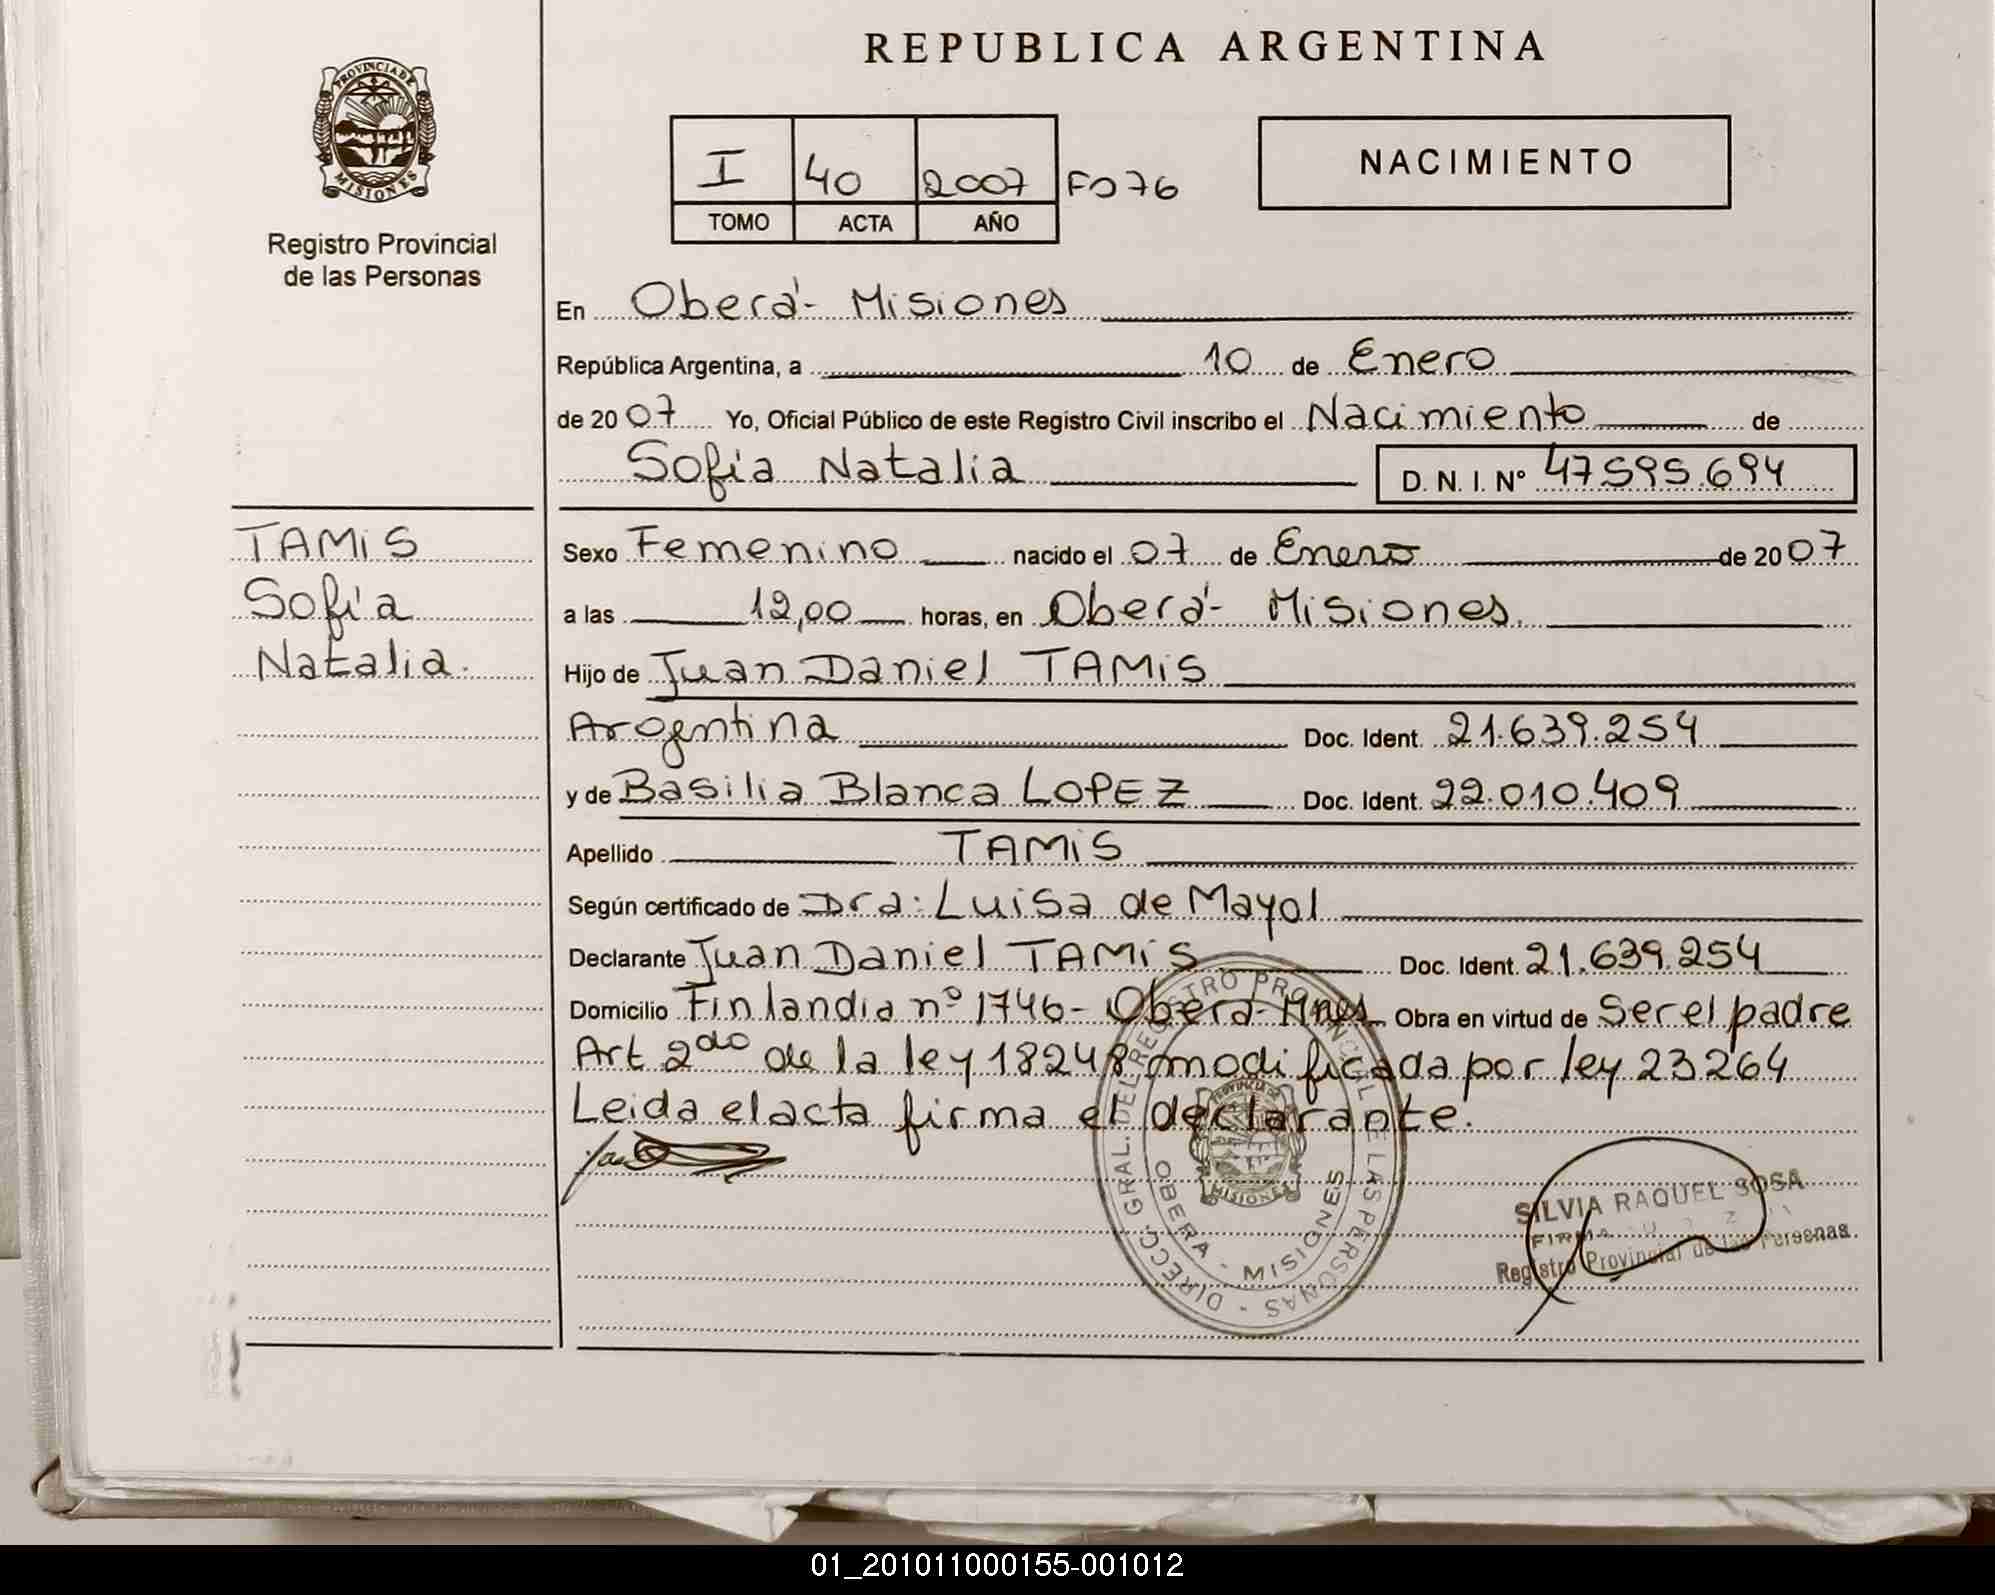 REPUBLICA ARGENTINA
PROVINCIA DE
MISIONES
Registro Provincial
de las Personas
I 40 2007 Fo 76
TOMO ACTA AÑO
NACIMIENTO
En Oberá- Misiones
República Argentina, a 10 de Enero
de 2007 Yo, Oficial Público de este Registro Civil inscribo el Nacimiento de
Sofía Natalia D. N. I. Nº 47595.694
TAMIS
Sofía
Natalia.
Sexo Femenino nacido el 07 de Enero de 2007
a las 12,00 horas, en Oberá- Misiones.
Hijo de Juan Daniel TAMIS
Argentina Doc. Ident. 21.639.254
y de Basilia Blanca LOPEZ Doc. Ident. 22.010.409
Apellido TAMIS
Según certificado de Dra: Luisa de Mayol
Declarante Juan Daniel TAMIS Doc. Ident. 21.639.254
Domicilio Finlandia nº 1746- Oberá-Mnes Obra en virtud de Ser el padre
Art 2do de la ley 18248 modificada por ley 23264
Leida el acta firma el declarante.
DIRECC. GRAL. DEL REGISTRO PROVINCIAL DE LAS PERSONAS -
PROVINCIA DE
MISIONES
OBERA - MISIONES
SILVIA RAQUEL SOSA
FIRMA
Registro Provincial de las Personas
01_201011000155-001012